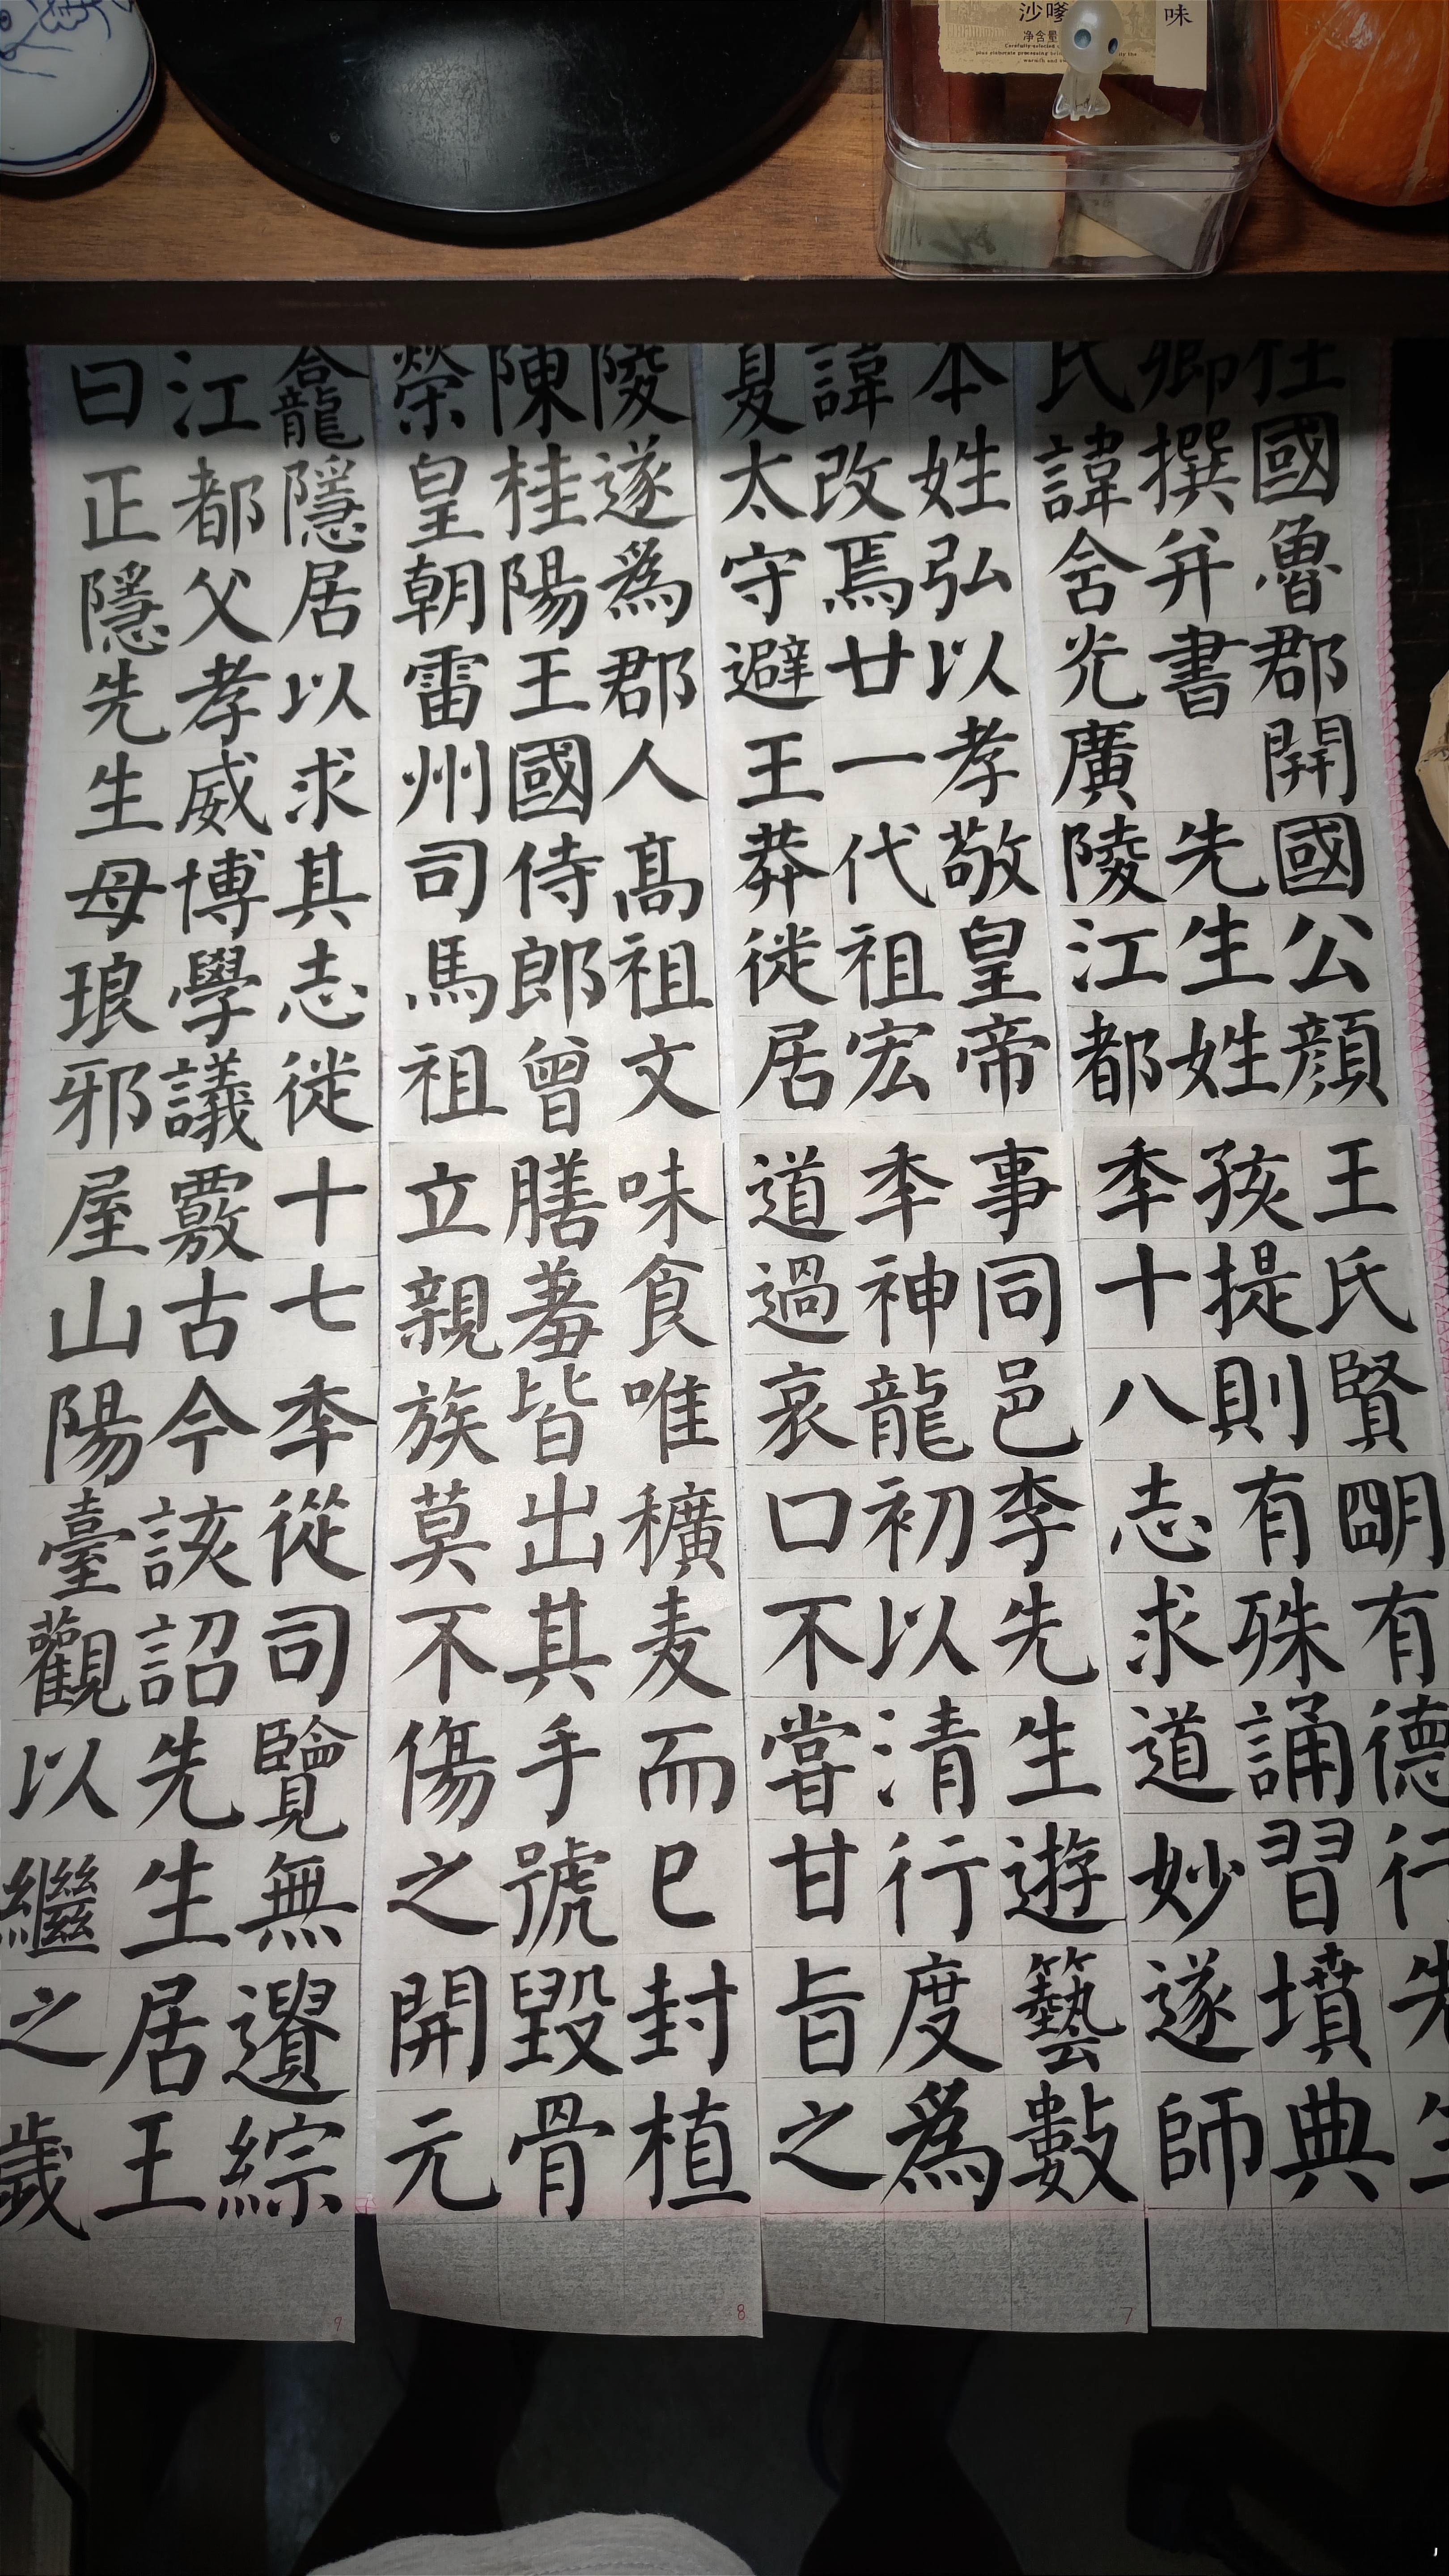 沙嗲
味
净含量
柱國魯郡開國公顏
卿撰并書 先生姓
氏諱含光廣陵江都
本姓弘以孝敬皇帝
諱改焉廿一代祖宏
夏太守避王莽徙居
陵遂爲郡人高祖文
陳桂陽王國侍郎曾
榮皇朝雷州司馬祖
龕隱居以求其志徙
江都父孝威博學議
曰正隱先生母琅邪
王氏賢明有德行先生
孩提則有殊誦習墳典
季十八志求道妙遂師
事同邑李先生遊藝數
季神龍初以清行度爲
道過哀口不嘗甘旨之
味食唯穬麦而已封植
膳羞皆出其手號毀骨
立親族莫不傷之開元
十七季從司覽無遺綜
覈古今該詔先生居王
屋山陽臺觀以繼之歲
7
8
9